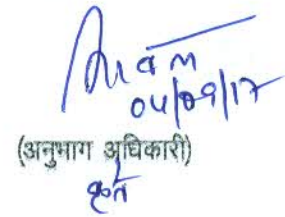 04/09/17
(अनुभाग अधिकारी)
कृते